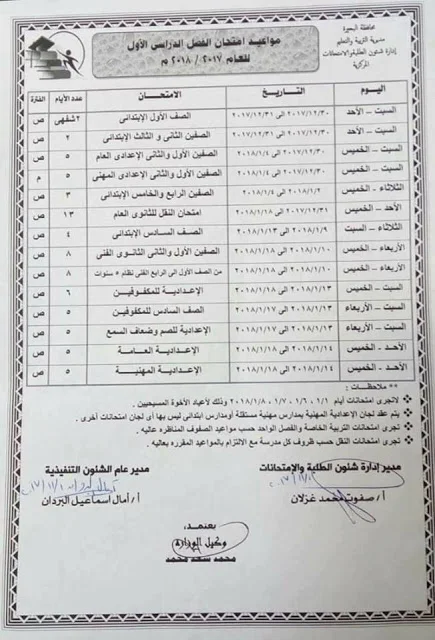 محافظة البحيرة
مديرية التربية والتعليم
إدارة شئون الطلبة والامتحانات
المركزية
مواعيد امتحان الفصل الدراسي الأول
للعام ٢٠١٧ / ٢٠١٨ م
اليوم التاريخ الامتحان عدد الأيام الفترة
السبت – الأحد ٢٠١٧/١٢/٣٠ الى ٢٠١٧/١٢/٣١ الصف الأول الإبتدائى ٢ شفهى ص
السبت – الأحد ٢٠١٧/١٢/٣٠ الى ٢٠١٧/١٢/٣١ الصفين الثانى و الثالث الإبتدائى ٢ ص
السبت – الخميس ٢٠١٧/١٢/٣٠ الى ٢٠١٨/١/٤ الصفين الأول والثانى الإعدادى العام ٥ ص
السبت – الخميس ٢٠١٧/١٢/٣٠ الى ٢٠١٨/١/٤ الصفين الأول والثانى الإعدادى المهنى ٥ م
الثلاثاء – الخميس ٢٠١٨/١/٢ الى ٢٠١٨/١/٤ الصفين الرابع والخامس الإبتدائى ٣ ص
الأحد – الخميس ٢٠١٧/١٢/٣١ الى ٢٠١٨/١/١٨ امتحان النقل للثانوى العام ١٣ ص
الثلاثاء – السبت ٢٠١٨/١/٩ الى ٢٠١٨/١/١٣ الصف السادس الإبتدائى ٤ ص
الأربعاء – الخميس ٢٠١٨/١/١٠ الى ٢٠١٨/١/١٨ الصفين الأول والثانى الثانوى الفنى ٨ ص
الأربعاء – الخميس ٢٠١٨/١/١٠ الى ٢٠١٨/١/١٨ من الصف الأول الى الرابع الفنى نظام ٥ سنوات ٨ ص
السبت – الخميس ٢٠١٨/١/١٣ الى ٢٠١٨/١/١٨ الإعدادية للمكفوفين ٦ ص
السبت – الأربعاء ٢٠١٨/١/١٣ الى ٢٠١٨/١/١٧ الصف السادس للمكفوفين ٥ ص
السبت – الأربعاء ٢٠١٨/١/١٣ الى ٢٠١٨/١/١٧ الإعدادية للصم وضعاف السمع ٥ ص
الأحد – الخميس ٢٠١٨/١/١٤ الى ٢٠١٨/١/١٨ الإعدادية العامة ٥ ص
الأحد – الخميس ٢٠١٨/١/١٤ الى ٢٠١٨/١/١٨ الإعدادية المهنية ٥ ص
** ملاحظات :
لاتجرى امتحانات أيام ١/١ ، ١/٦ ، ١/٧ ، ٢٠١٨/١/٨ وذلك لأعياد الأخوة المسيحيين .
يتم عقد لجان الإعدادية المهنية بمدارس مهنية مستقلة أومدارس ابتدائى ليس بها أى لجان امتحانات أخرى .
تجرى امتحانات التربية الخاصة والفصل الواحد حسب مواعيد الصفوف المناظره عاليه .
تجرى امتحانات النقل حسب ظروف كل مدرسة مع الالتزام بالمواعيد المقرره بعاليه .
مدير إدارة شئون الطلبة والإمتحانات مدير عام الشئون التنفيذية
أ/ صفوت محمد غزلان أ/ أمال اسماعيل البزدان
يعتمد،
وكيل الوزارة
محمد سعد محمد